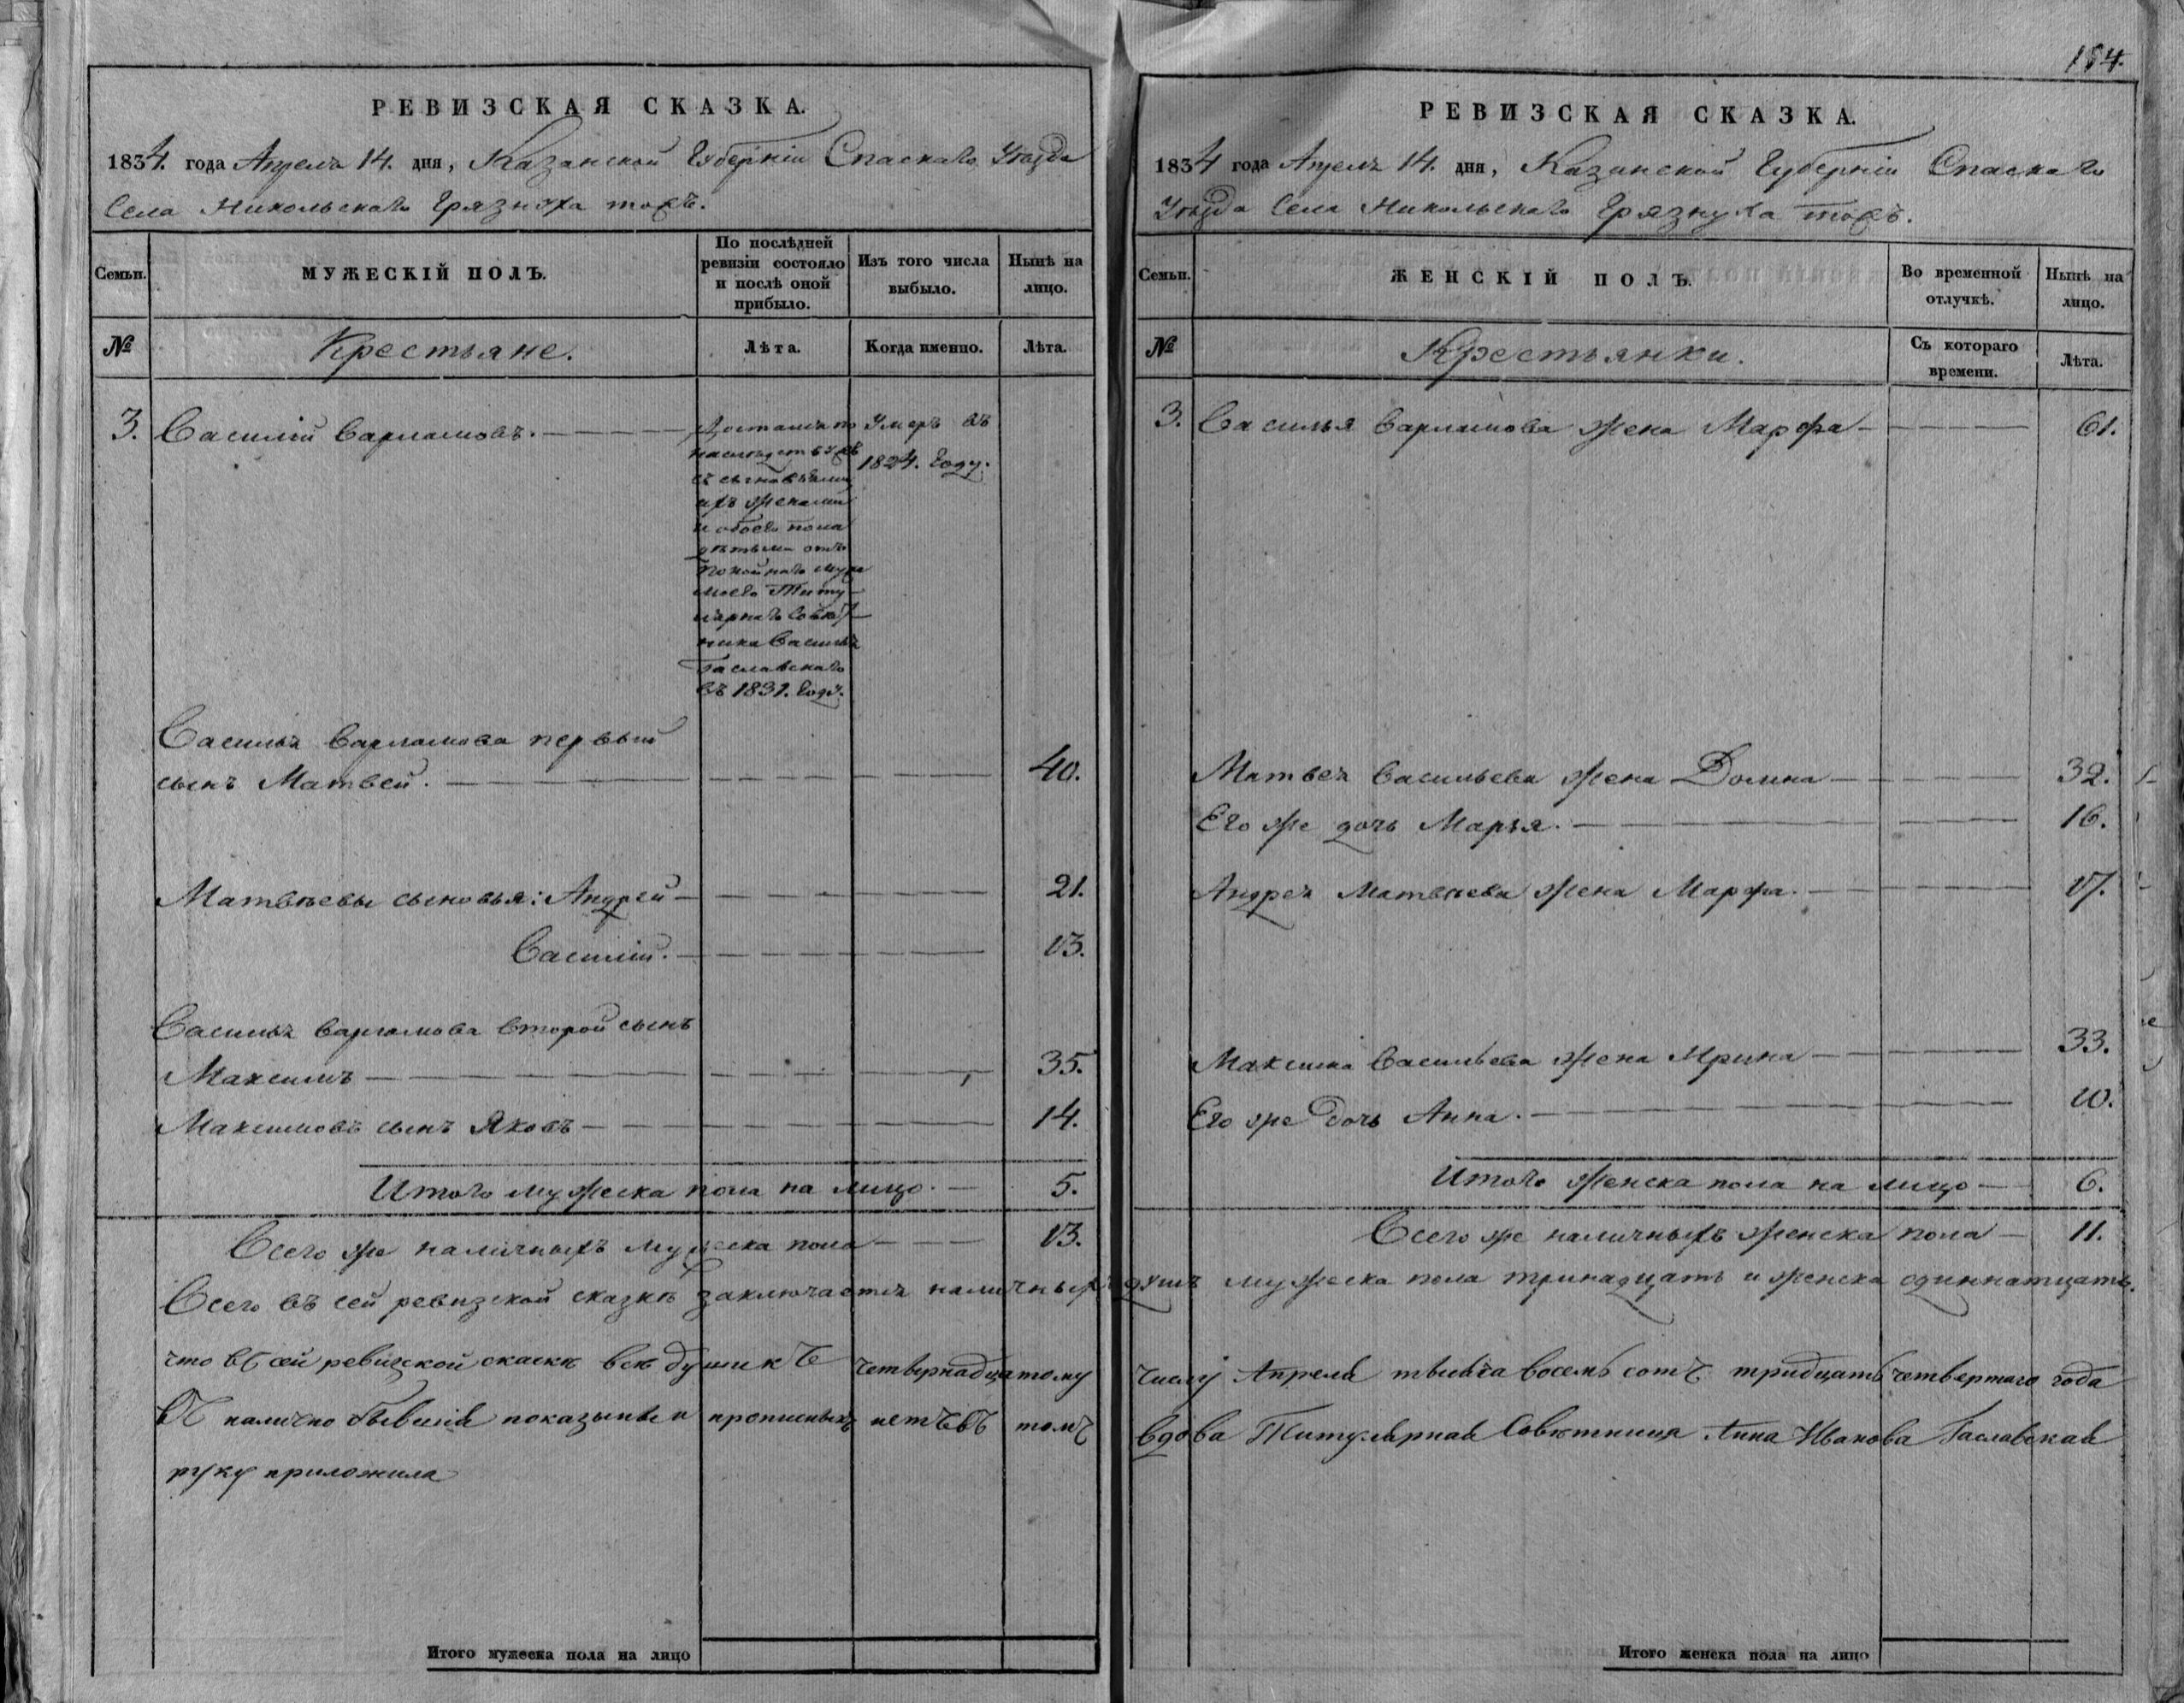 РЕВИЗСКАЯ СКАЗКА.
1834. года Апреля 14. дня, Казанской Губерніи Спаскаго Уѣзда
Села Никольскаго Грязнуха тожъ.
Семьи.
МУЖЕСКІЙ ПОЛЪ.
По послѣдней ревизіи состояло и послѣ оной прибыло.
Изъ того числа выбыло.
Нынѣ на лицо.
№
Крестьяне.
Лѣта.
Когда именно.
Лѣта.
3. Василій Варламовъ.
Достался по
наследству
съ сыновьями
ихъ женами
и обоего пола
детьми отъ
покойнаго мужа
моего Титу-
лярнаго Совѣт-
ника Василья
Гаславскаго
въ 1831. Году.
Умеръ въ
1824. Году.
Василья Варламова первый
сынъ Матвей. 40.
Матвѣевы сыновья: Андрей 21.
Василій. 13.
Василья Варламова второй сынъ
Максимъ 35.
Максимовъ сынъ Яковъ 14.
Итого мужеска пола на лицо. 5.
Всего же наличныхъ мужеска пола 13.
154.
РЕВИЗСКАЯ СКАЗКА.
1834 года Апреля 14. дня, Казанской Губерніи Спаскаго
Уѣзда Села Никольскаго Грязнуха тожъ.
Семьи.
ЖЕНСКІЙ ПОЛЪ.
Во временной отлучкѣ.
Нынѣ на лицо.
№
Крестьянки.
Съ котораго времени.
Лѣта.
3. Василья Варламова жена Марфа 61.
Матвея Васильева жена Домна 32.
Его же дочь Марья. 16.
Андрея Матвѣева жена Марфа. 17.
Максима Васильева жена Ирина 33.
Его же дочь Анна. 10.
Итого женска пола на лицо 6.
Всего же наличныхъ женска пола 11.
Всего въ сей ревизской сказкѣ заключается наличныхъ душъ мужеска пола тринадцать и женска одиннатцать.
что въ сей ревизской скаскѣ всѣ души къ четвернадцатому числу Апреля тысяча восемь сотъ тридцать четвертаго года
въ налично бывшія показаны и прописныхъ нетъ въ томъ вдова Титулярная Совѣтница Анна Иванова Гаславская
руку приложила
Итого мужеска пола на лицо
Итого женска пола на лицо